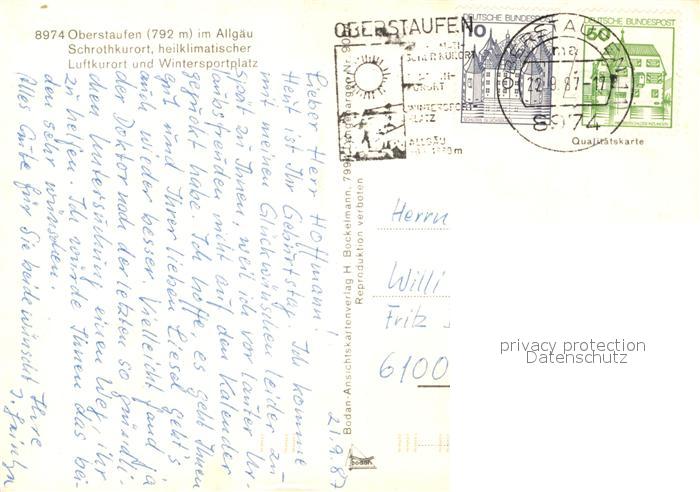 8974 Oberstaufen (792 m) im Allgäu
Schrothkurort, heilklimatischer
Luftkurort und Wintersportplatz
21.9.87
Lieber Herr Hoffmann!
Heut ist Ihr Geburtstag. Ich komme
mit meinen Glückwünschen leider zu
spät zu Ihnen, weil ich vor lauter Ur-
laubsfreuden nicht auf den Kalender
geguckt habe. Ich hoffe, es geht Ihnen
gut und Ihrer lieben Liesel geht's
auch wieder besser. Vielleicht fand ja
der Doktor nach der letzten so gründli-
chen Untersuchung einen Weg, ihr
zu helfen. Ich würde Ihnen das bei-
den sehr wünschen.
Alles Gute für Sie beide wünscht Ihre
Bodan-Ansichtskartenverlag H. Bockelmann,
Reproduktion verboten
bodan
OBERSTAUFEN
WINTERSPORT
PLATZ
ALLGÄU
DEUTSCHE BUNDESPOST
DEUTSCHE BUNDESPOST
60
OBERSTAUFEN 1
ma
22.9.87-17
8974
Qualitätskarte
Herrn
Willi
Fritz
6100
privacy protection
Datenschutz